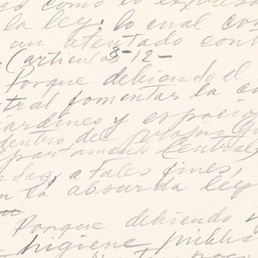 como lo expresa
la ley; lo cual cons
un atentado cont
(articulo 3-12-
Porque debiendo el
tral fomentar la c
jardines y espacio
dentro del
partamento Central
a tales fines,
la absurda ley
Porque debiendo
higiene públic